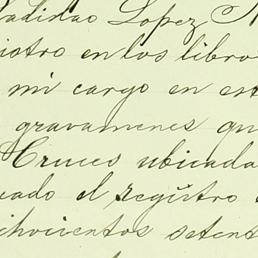 Ladislao Lopez N
istro en los libro
mi cargo en est
gravamenes qu
Cruces ubicada
eado el registro
chocientos setent